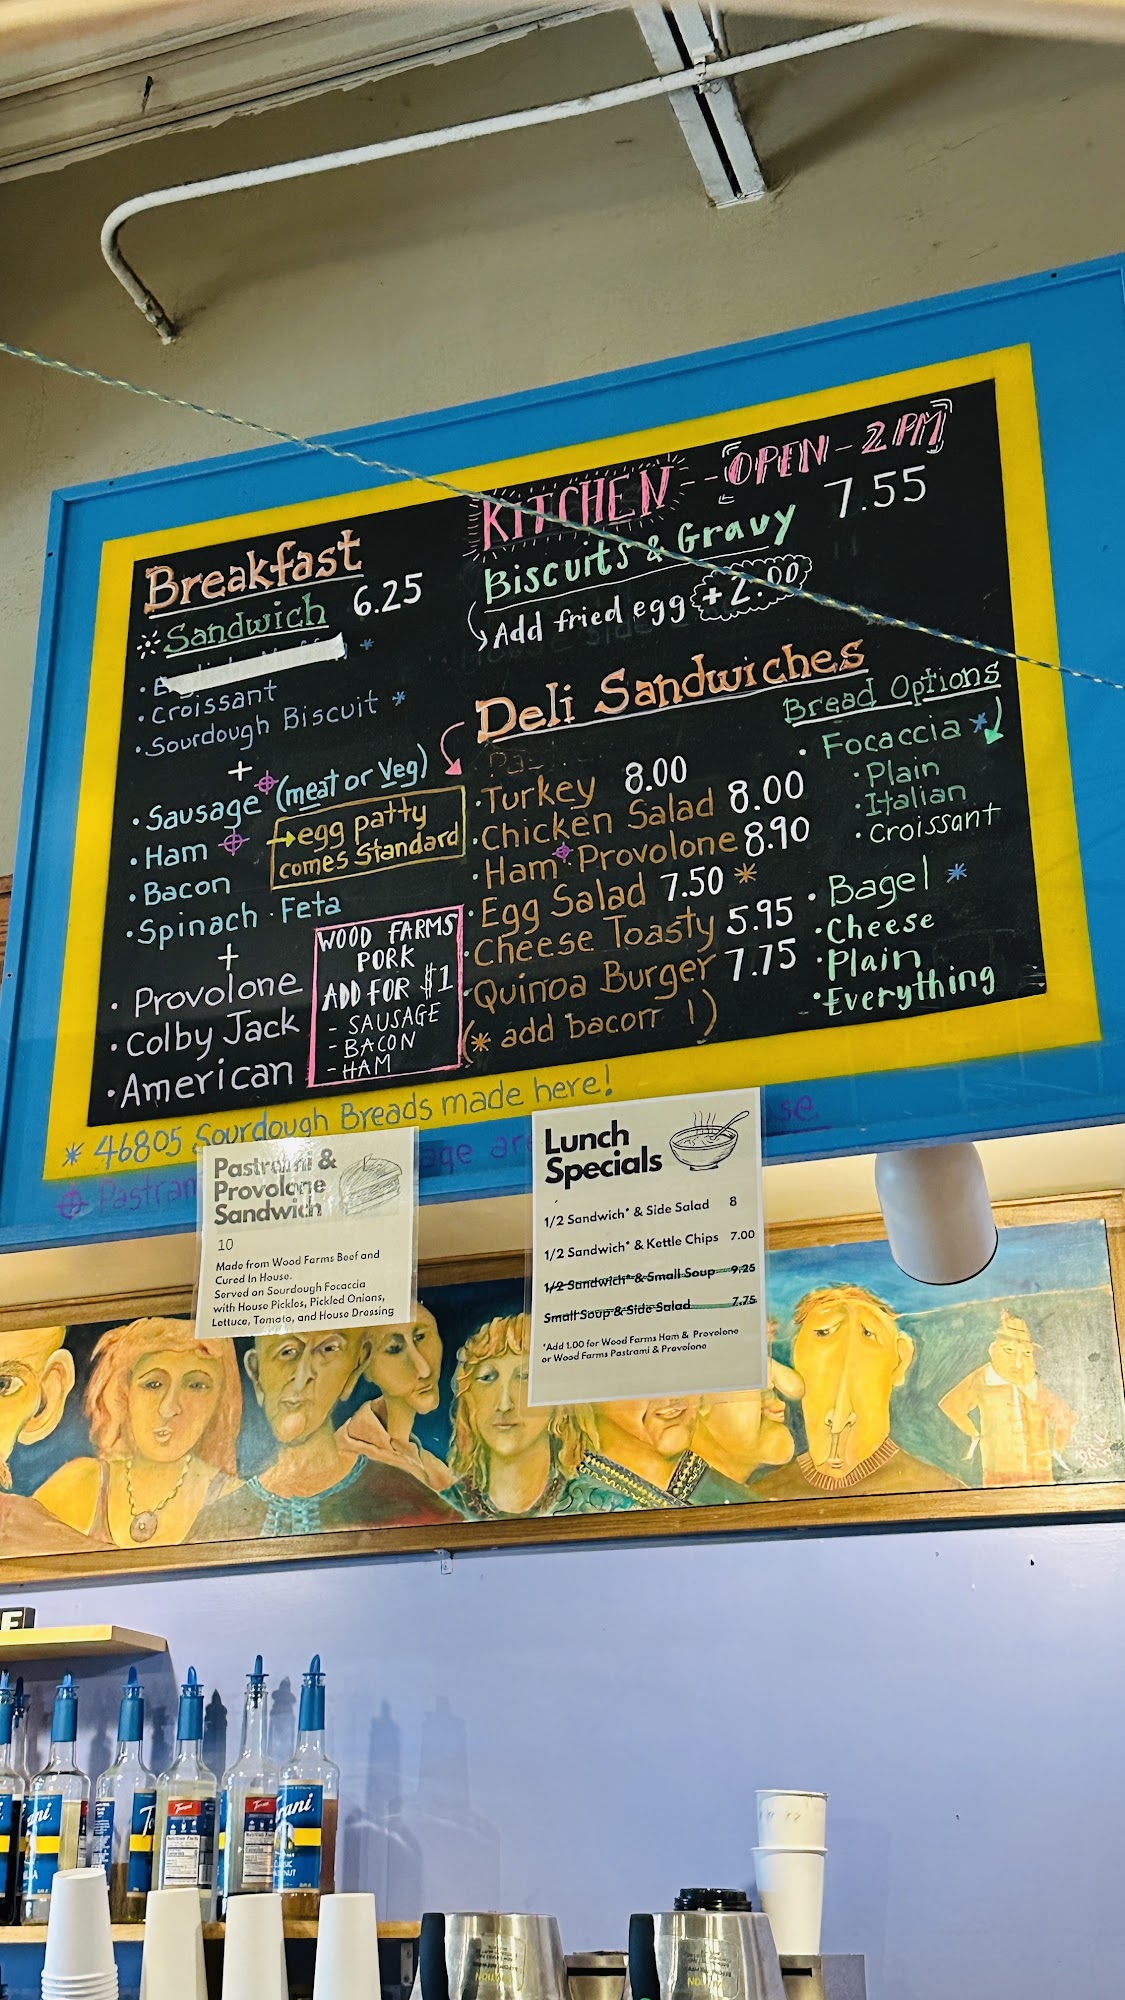 KITCHEN -- OPEN - 2 PM
Biscuits & Gravy 7.55
Add fried egg + 2.00
Breakfast
Sandwich 6.25
· Croissant
· Sourdough Biscuit *
+
· Sausage (meat or Veg)
· Ham
· Bacon
· Spinach · Feta
→ egg patty
comes Standard
+
· Provolone
· Colby Jack
· American
WOOD FARMS
PORK
ADD FOR $1
- SAUSAGE
- BACON
- HAM
Deli Sandwiches
· Turkey 8.00
· Chicken Salad 8.00
· Ham Provolone 8.90
· Egg Salad 7.50 *
· Cheese Toasty 5.95
· Quinoa Burger 7.75
(* add bacon 1)
Bread Options
· Focaccia *
· Plain
· Italian
· Croissant
· Bagel *
· Cheese
· Plain
· Everything
* 46805 Sourdough Breads made here!
Pastrami &
Provolone
Sandwich
10
Made from Wood Farms Beef and
Cured In House.
Served on Sourdough Focaccia
with House Pickles, Pickled Onions,
Lettuce, Tomato, and House Dressing
Lunch
Specials
1/2 Sandwich* & Side Salad 8
1/2 Sandwich* & Kettle Chips 7.00
1/2 Sandwich* & Small Soup 9.25
Small Soup & Side Salad 7.75
*Add 1.00 for Wood Farms Ham & Provolone
or Wood Farms Pastrami & Provolone
Torani